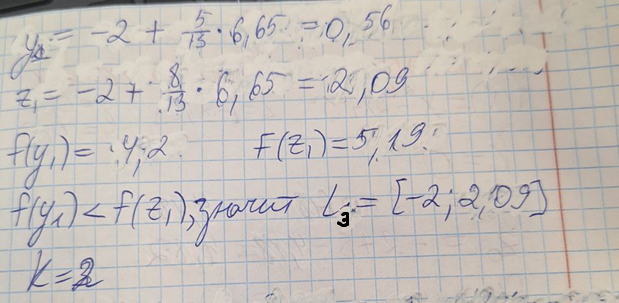 y₁ = -2 + 5/13 · 6,65 = 0,56
z₁ = -2 + 8/13 · 6,65 = 2,09
f(y₁) = 4,2 F(z₁) = 5,19
f(y₁) < f(z₁), значит L₃ = [-2; 2,09]
K = 2